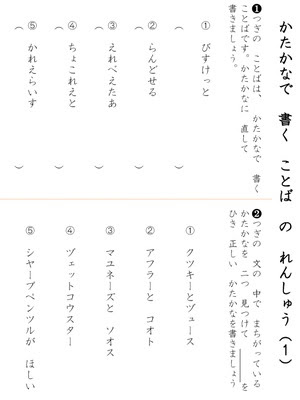 かたかなで 書く ことば の れんしゅう（1）
❶つぎの ことばは、 かたかなで 書く
ことばです。かたかなに 直して
書きましょう。
① びすけっと
（ ）
② らんどせる
（ ）
③ えれべえたあ
（ ）
④ ちょこれえと
（ ）
⑤ かれえらいす
（ ）
❷つぎの 文の 中で まちがっている
かたかなを 二つ 見つけて を
ひき 正しい かたかなを書きましょう
① クツキーとヅュース
② アフラーと コオト
③ マユネーズと ソオス
④ ヴェットコウスター
⑤ シヤープペンツルが ほしい